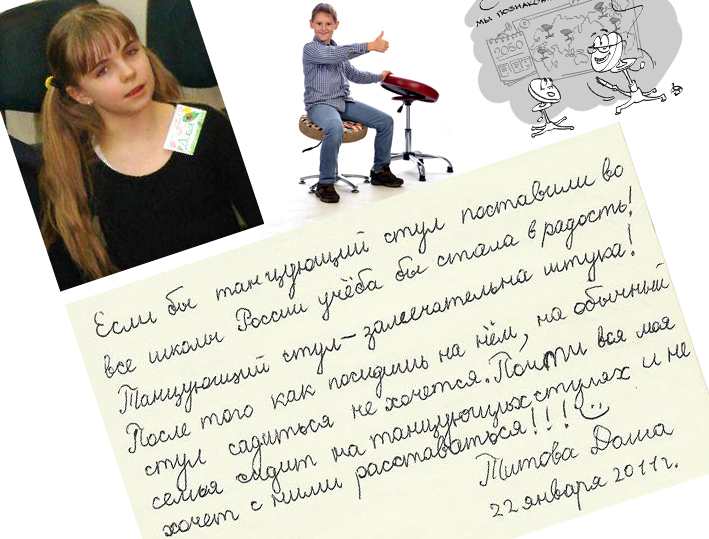 мы познаком
2050
Если бы танцующий стул поставили во
все школы России учёба бы стала в радость!
Танцующий стул - замечательна штука!
После того как посидишь на нём, на обычный
стул садиться не хочется. Почти вся моя
семья сидит на танцующих стулях и не
хочет с ними расставаться!!! 
Титова Даша
22 января 2011 г.